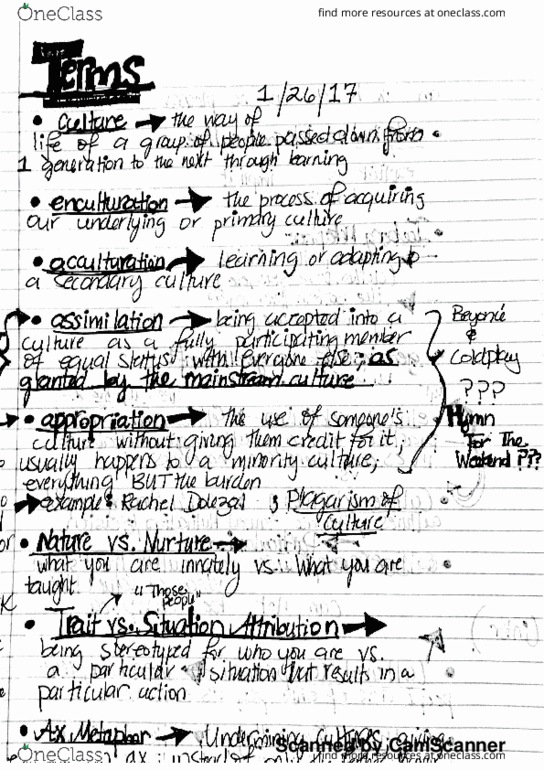 OneClass
find more resources at oneclass.com
Terms
1/26/17
• culture → the way of
life of a group of people passed down from
1 generation to the next through learning
• enculturation → the process of acquiring
our underlying or primary culture
• acculturation → learning or adapting to
a secondary culture
• assimilation → being accepted into a
culture as a fully participating member
of equal status with everyone else; as
granted by the mainstream culture
Beyoncé
&
Coldplay
???
Hymn
For The
Weekend ???
• appropriation → the use of someone's
culture without giving them credit for it,
usually happens to a minority culture,
everything BUT the burden
→ example: Rachel Dolezal
Plagarism of
culture
• Nature vs. Nurture →
what you are innately vs. what you are
taught
"Those
people"
• Trait vs. Situation Attribution →
being stereotyped for who you are vs.
a particular situation that results in a
particular action
• Ax Metaphor → Undermining cultures, giving
Scanned by CamScanner
OneClass
find more resources at oneclass.com